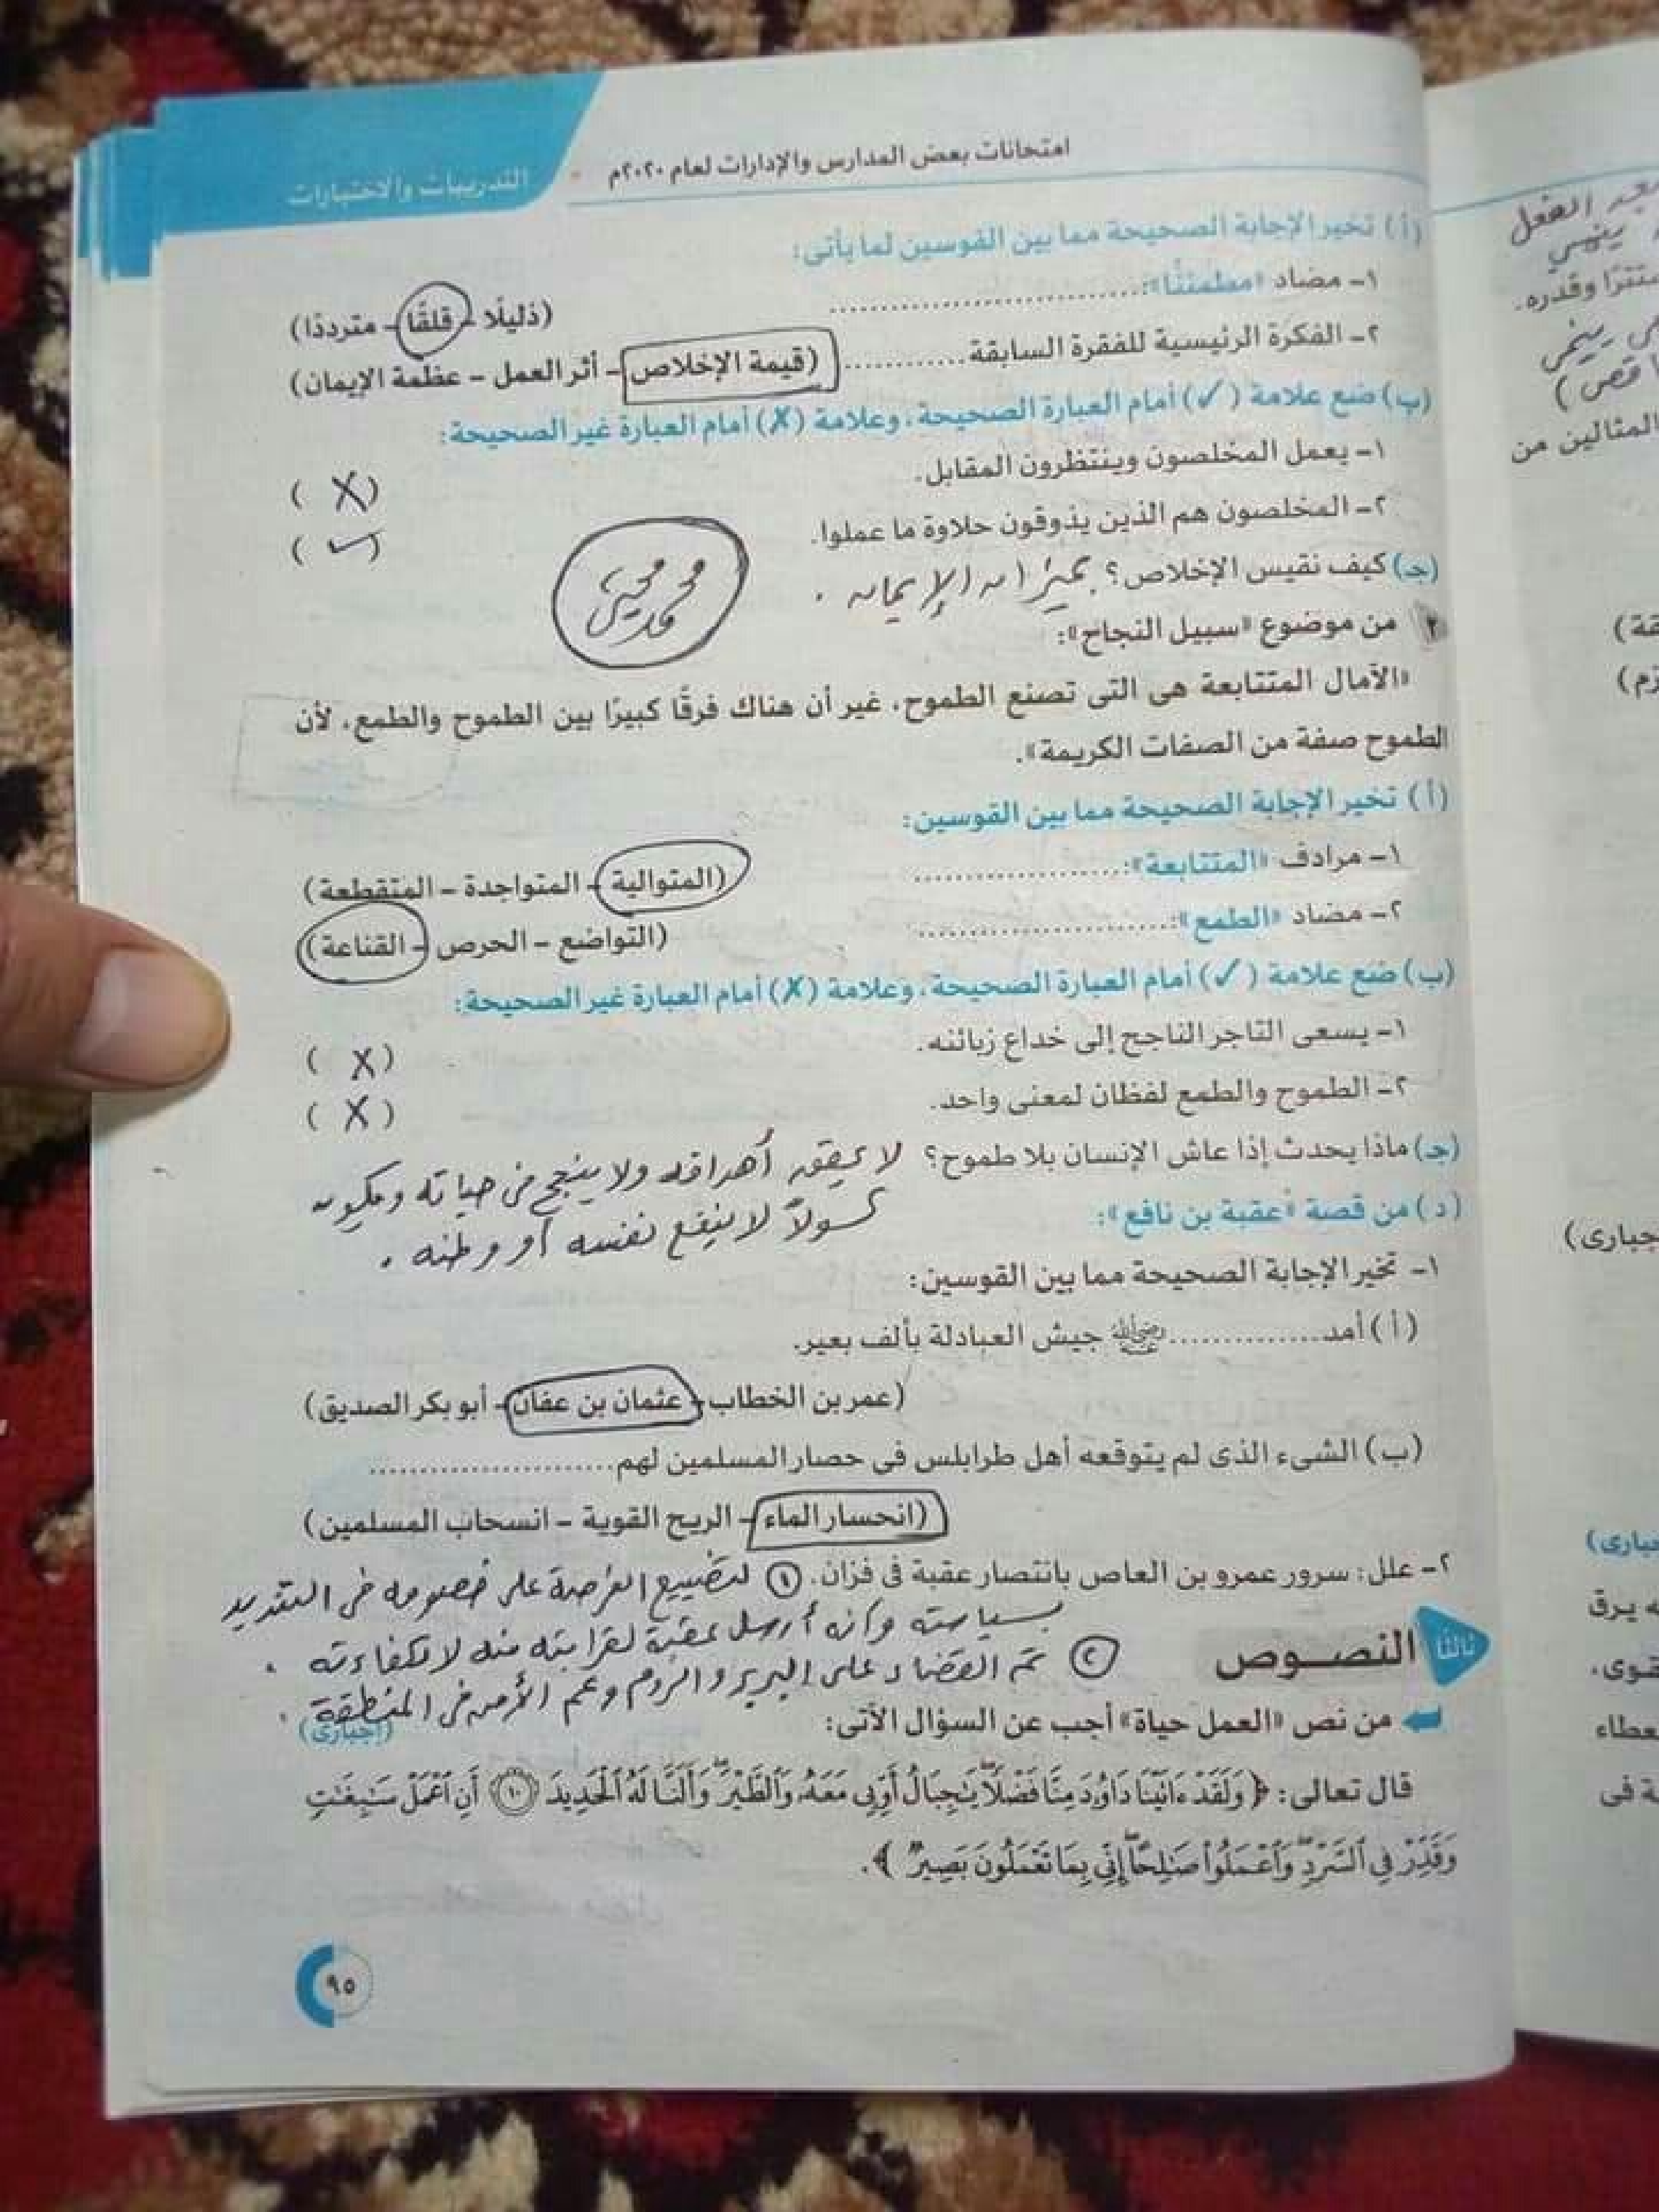 امتحانات بعض المدارس والإدارات لعام ٢٠٢٠م
التدريبات والاختبارات
(أ) تخير الإجابة الصحيحة مما بين القوسين لما يأتى:
١- مضاد «مطمئنًّا»: ........................... (ذليلًا - قلقًا - مترددًا)
٢- الفكرة الرئيسية للفقرة السابقة ............ (قيمة الإخلاص - أثر العمل - عظمة الإيمان)
(ب) ضع علامة (✓) أمام العبارة الصحيحة، وعلامة (✗) أمام العبارة غير الصحيحة:
١- يعمل المخلصون وينتظرون المقابل. (X)
٢- المخلصون هم الذين يذوقون حلاوة ما عملوا. (✓)
(جـ) كيف نقيس الإخلاص؟ بميزان الإيمان .
٢ من موضوع «سبيل النجاح»:
«الآمال المتتابعة هى التى تصنع الطموح، غير أن هناك فرقًا كبيرًا بين الطموح والطمع، لأن
الطموح صفة من الصفات الكريمة».
(أ) تخير الإجابة الصحيحة مما بين القوسين:
١- مرادف «المتتابعة»: .................... (المتوالية - المتواجدة - المتقطعة)
٢- مضاد «الطمع»: ........................ (التواضع - الحرص - القناعة)
(ب) ضع علامة (✓) أمام العبارة الصحيحة، وعلامة (✗) أمام العبارة غير الصحيحة:
١- يسعى التاجر الناجح إلى خداع زبائنه. (X)
٢- الطموح والطمع لفظان لمعنى واحد. (X)
(جـ) ماذا يحدث إذا عاش الإنسان بلا طموح؟ لا يحقق أهدافه ولا ينجح فى حياته ويكون
كسولاً لا ينفع نفسه أو وطنه .
(د) من قصة «عقبة بن نافع»:
١- تخير الإجابة الصحيحة مما بين القوسين:
(أ) أمد ............... رضي الله عنه جيش العبادلة بألف بعير.
(عمر بن الخطاب - عثمان بن عفان - أبو بكر الصديق)
(ب) الشىء الذى لم يتوقعه أهل طرابلس فى حصار المسلمين لهم ........................
(انحسار الماء - الريح القوية - انسحاب المسلمين)
٢- علل: سرور عمرو بن العاص بانتصار عقبة فى فزان. ① لتضييع الفرصة على خصومه فى التنديد
بسياسته وأنه أرسل عقبة لقرابته منه لا لكفاءته .
② تم القضاء على البربر والروم وعم الأمن فى المنطقة .
ثالثًا النصوص
من نص «العمل حياة» أجب عن السؤال الآتى: (إجبارى)
قال تعالى: ﴿وَلَقَدْ ءَاتَيْنَا دَاوُۥدَ مِنَّا فَضْلًا يَٰجِبَالُ أَوِّبِى مَعَهُۥ وَٱلطَّيْرَ وَأَلَنَّا لَهُ ٱلْحَدِيدَ ١٠ أَنِ ٱعْمَلْ سَٰبِغَٰتٍ
وَقَدِّرْ فِى ٱلسَّرْدِ وَٱعْمَلُوا۟ صَٰلِحًا إِنِّى بِمَا تَعْمَلُونَ بَصِيرٌ﴾.
٩٥
ينهى
مستترًا وقدره.
المثالين من
جبارى)
جبارى)
ه يرق
قوى،
عطاء
ة فى